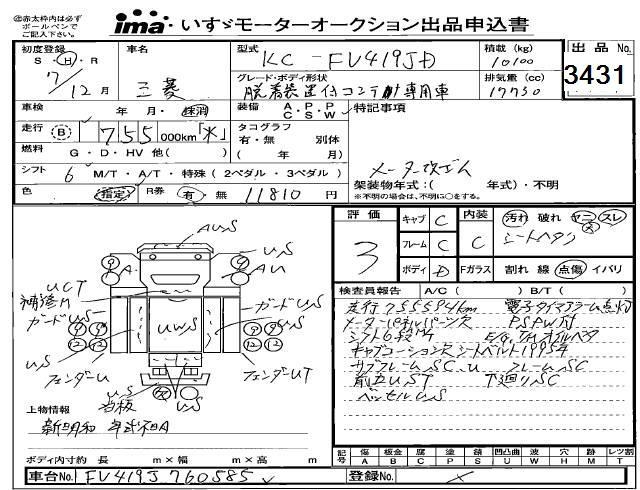 ②赤太枠内は必ず
ボールペンで
ご記入下さい。
ima・いすゞモーターオークション出品申込書
初度登録
S・H・R
7/12月
車名
三菱
型式
KC-FV419JD
積載 (kg)
10100
グレード・ボディ形状
脱着装置付コンテナ専用車
排気量 (cc)
17730
出品 No.
3431
車検
年 月・抹消
装備 A・P・P
C・S・W
特記事項
走行 B 755 000km「*」
タコグラフ
有・無 別体
( 年 月)
燃料 G・D・HV 他( )
メーター改ざん
シフト 6 M/T・A/T・特殊 (2ペダル・3ペダル)
架装物年式:( 年式)・不明
※不明の場合は、不明に○をする。
色 指定 R券 有・無 11810 円
評価
3
キャブ C
フレーム C
ボディ D
内装 C
汚れ 破れ ヤニ スレ 大
シートヘタリ
Fガラス 割れ 線 点傷 イバリ
検査員報告 A/C ( ) B/T ( )
走行755594km
メーターパネルバーンズ PSPW付
シフト6段M
シートベルト1995年
サブフレームSC
フレームSC
前立UST 下廻りSC
ベッセルUS
AUS
US
A
AU
UCT
補修M
ガードUS
UWS
ガードUS
US
US
フェンダーU
フェンダーUT
US
右板
US
上物情報
新明和 年式不明
ボディ内寸約 長 m×幅 m×高 m
記号 傷A 板金B 腐食C 塗装P サビS 錆G 凹凸曲U 波W 穴H 跡M レツ割T
車台No. FV419J760585
登録No.